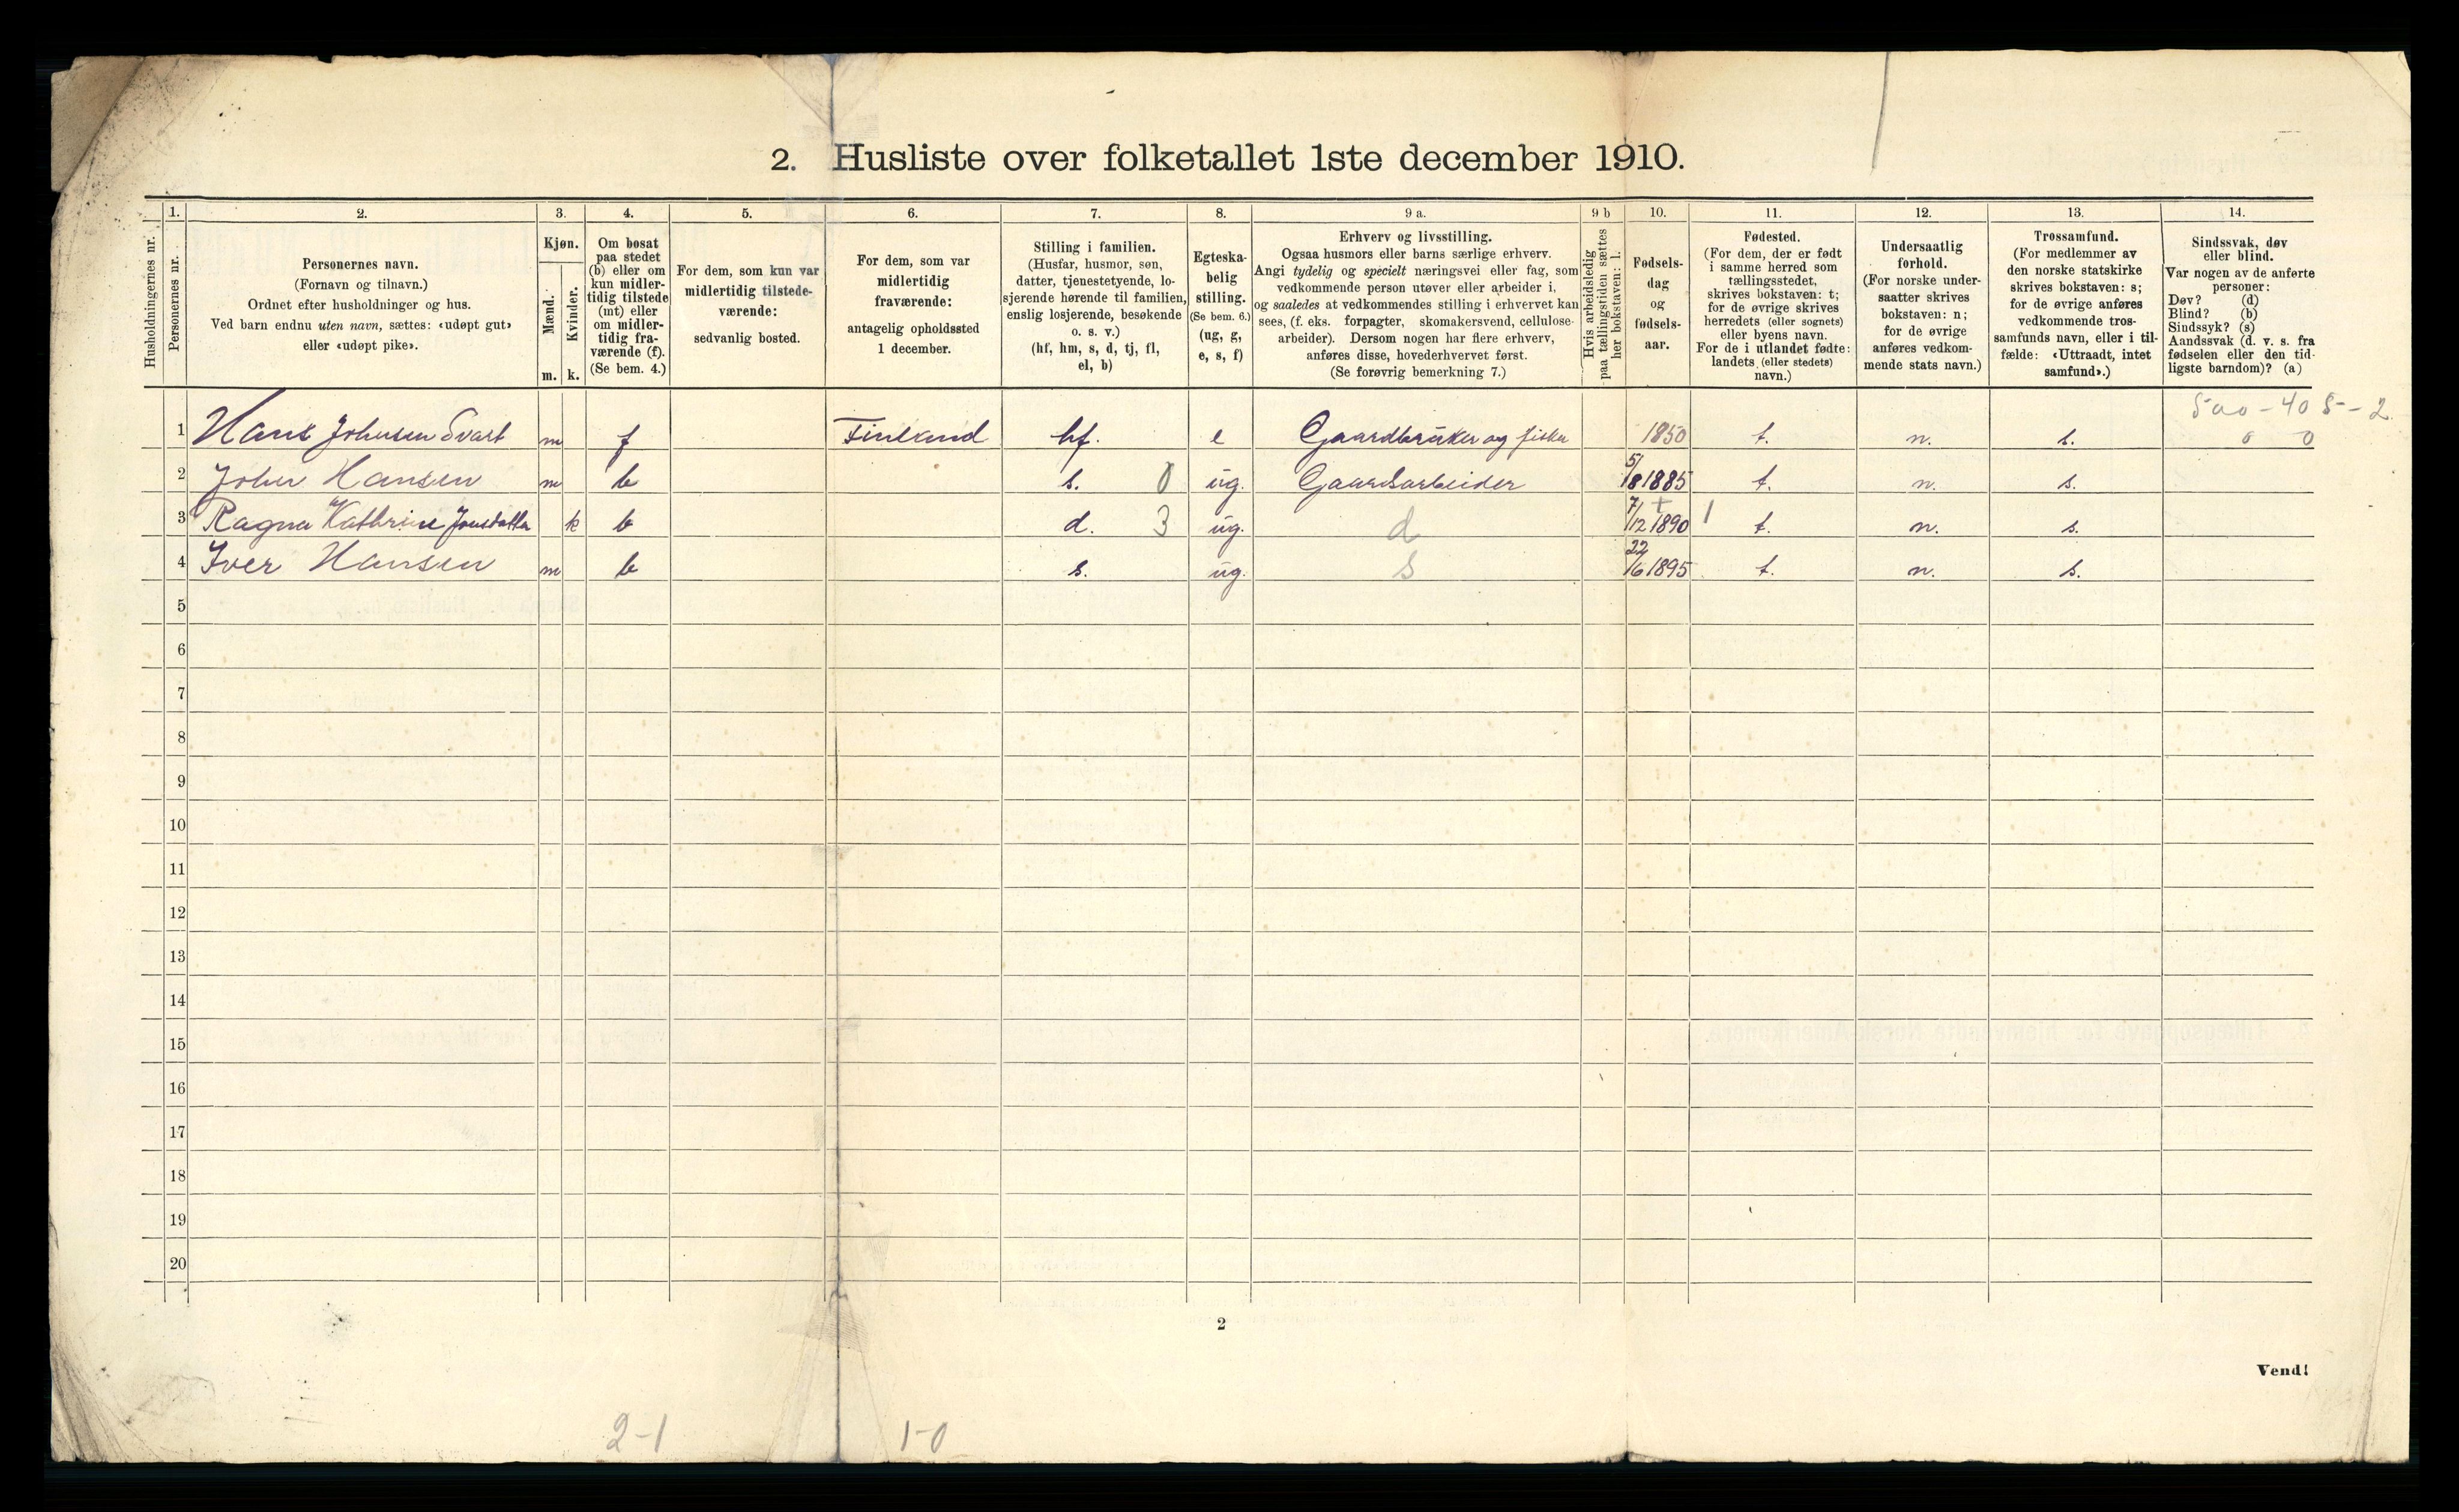 2. Husliste over folketallet 1ste december 1910.
Husholdningernes nr.
1.
Personernes nr.
2.
Personernes navn.
(Fornavn og tilnavn.)
Ordnet efter husholdninger og hus.
Ved barn endnu uten navn, sættes: «udøpt gut»
eller «udøpt pike».
3.
Kjøn.
Mænd.
Kvinder.
m. k.
4.
Om bosat
paa stedet
(b) eller om
kun midler-
tidig tilstede
(mt) eller
om midler-
tidig fra-
værende (f).
(Se bem. 4.)
5.
For dem, som kun var
midlertidig tilstede-
værende:
sedvanlig bosted.
6.
For dem, som var
midlertidig
fraværende:
antagelig opholdssted
1 december.
7.
Stilling i familien.
(Husfar, husmor, søn,
datter, tjenestetyende, lo-
sjerende hørende til familien,
enslig losjerende, besøkende
o. s. v.)
(hf, hm, s, d, tj, fl,
el, b)
8.
Egteska-
belig
stilling.
(Se bem. 6.)
(ug, g,
e, s, f)
9 a.
Erhverv og livsstilling.
Ogsaa husmors eller barns særlige erhverv.
Angi tydelig og specielt næringsvei eller fag, som
vedkommende person utøver eller arbeider i,
og saaledes at vedkommendes stilling i erhvervet kan
sees, (f. eks. forpagter, skomakersvend, cellulose-
arbeider). Dersom nogen har flere erhverv,
anføres disse, hovederhvervet først.
(Se forøvrig bemerkning 7.)
9 b
Hvis arbeidsledig
paa tællingstiden sættes
her bokstaven: l.
10.
Fødsels-
dag
og
fødsels-
aar.
11.
Fødested.
(For dem, der er født
i samme herred som
tællingsstedet,
skrives bokstaven: t;
for de øvrige skrives
herredets (eller sognets)
eller byens navn.
For de i utlandet fødte:
landets (eller stedets)
navn.)
12.
Undersaatlig
forhold.
(For norske under-
saatter skrives
bokstaven: n;
for de øvrige
anføres vedkom-
mende stats navn.)
13.
Trossamfund.
(For medlemmer av
den norske statskirke
skrives bokstaven: s;
for de øvrige anføres
vedkommende tros-
samfunds navn, eller i til-
fælde: «Uttraadt, intet
samfund».)
14.
Sindssvak, døv
eller blind.
Var nogen av de anførte
personer:
Døv? (d)
Blind? (b)
Sindssyk? (s)
Aandssvak (d. v. s. fra
fødselen eller den tid-
ligste barndom)? (a)
500 - 40 S - 2
1 Hans Johnsen Svart m f Finlxund hf. e Gaardbruker og fisker 1850 t. n. s. 0 0
2 John Hansen m b s. 0 ug. Gaardsarbeider 5/8 1885 t. n. s.
3 Ragna Kathrine Jonsdatter k b d. 3 ug. d 7/12 1890 1 t. n. s.
4 Iver Hansen m b s. ug. s 22/6 1895 t. n. s.
5
6
7
8
9
10
11
12
13
14
15
16
17
18
19
20
2
Vend!
2-1 1-0